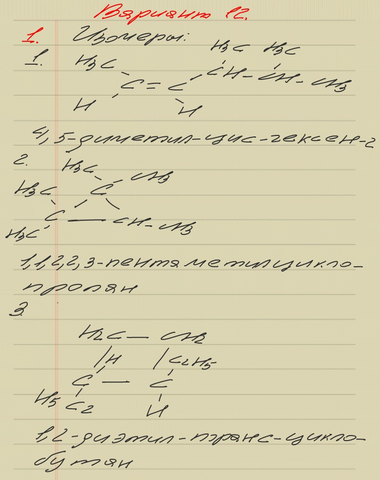 Вариант 12.
1. Изомеры:
1. H3C H3C H3C
C = C CH - CH - CH3
H H
4,5-диметил-цис-гексен-2
2. H3C CH3
H3C C
C — CH - CH3
H3C
1,1,2,2,3-пентаметилцикло-
пропан
3.
H2C — CH2
H C2H5
C — C
H5C2 H
1,2-диэтил-транс-цикло-
бутан